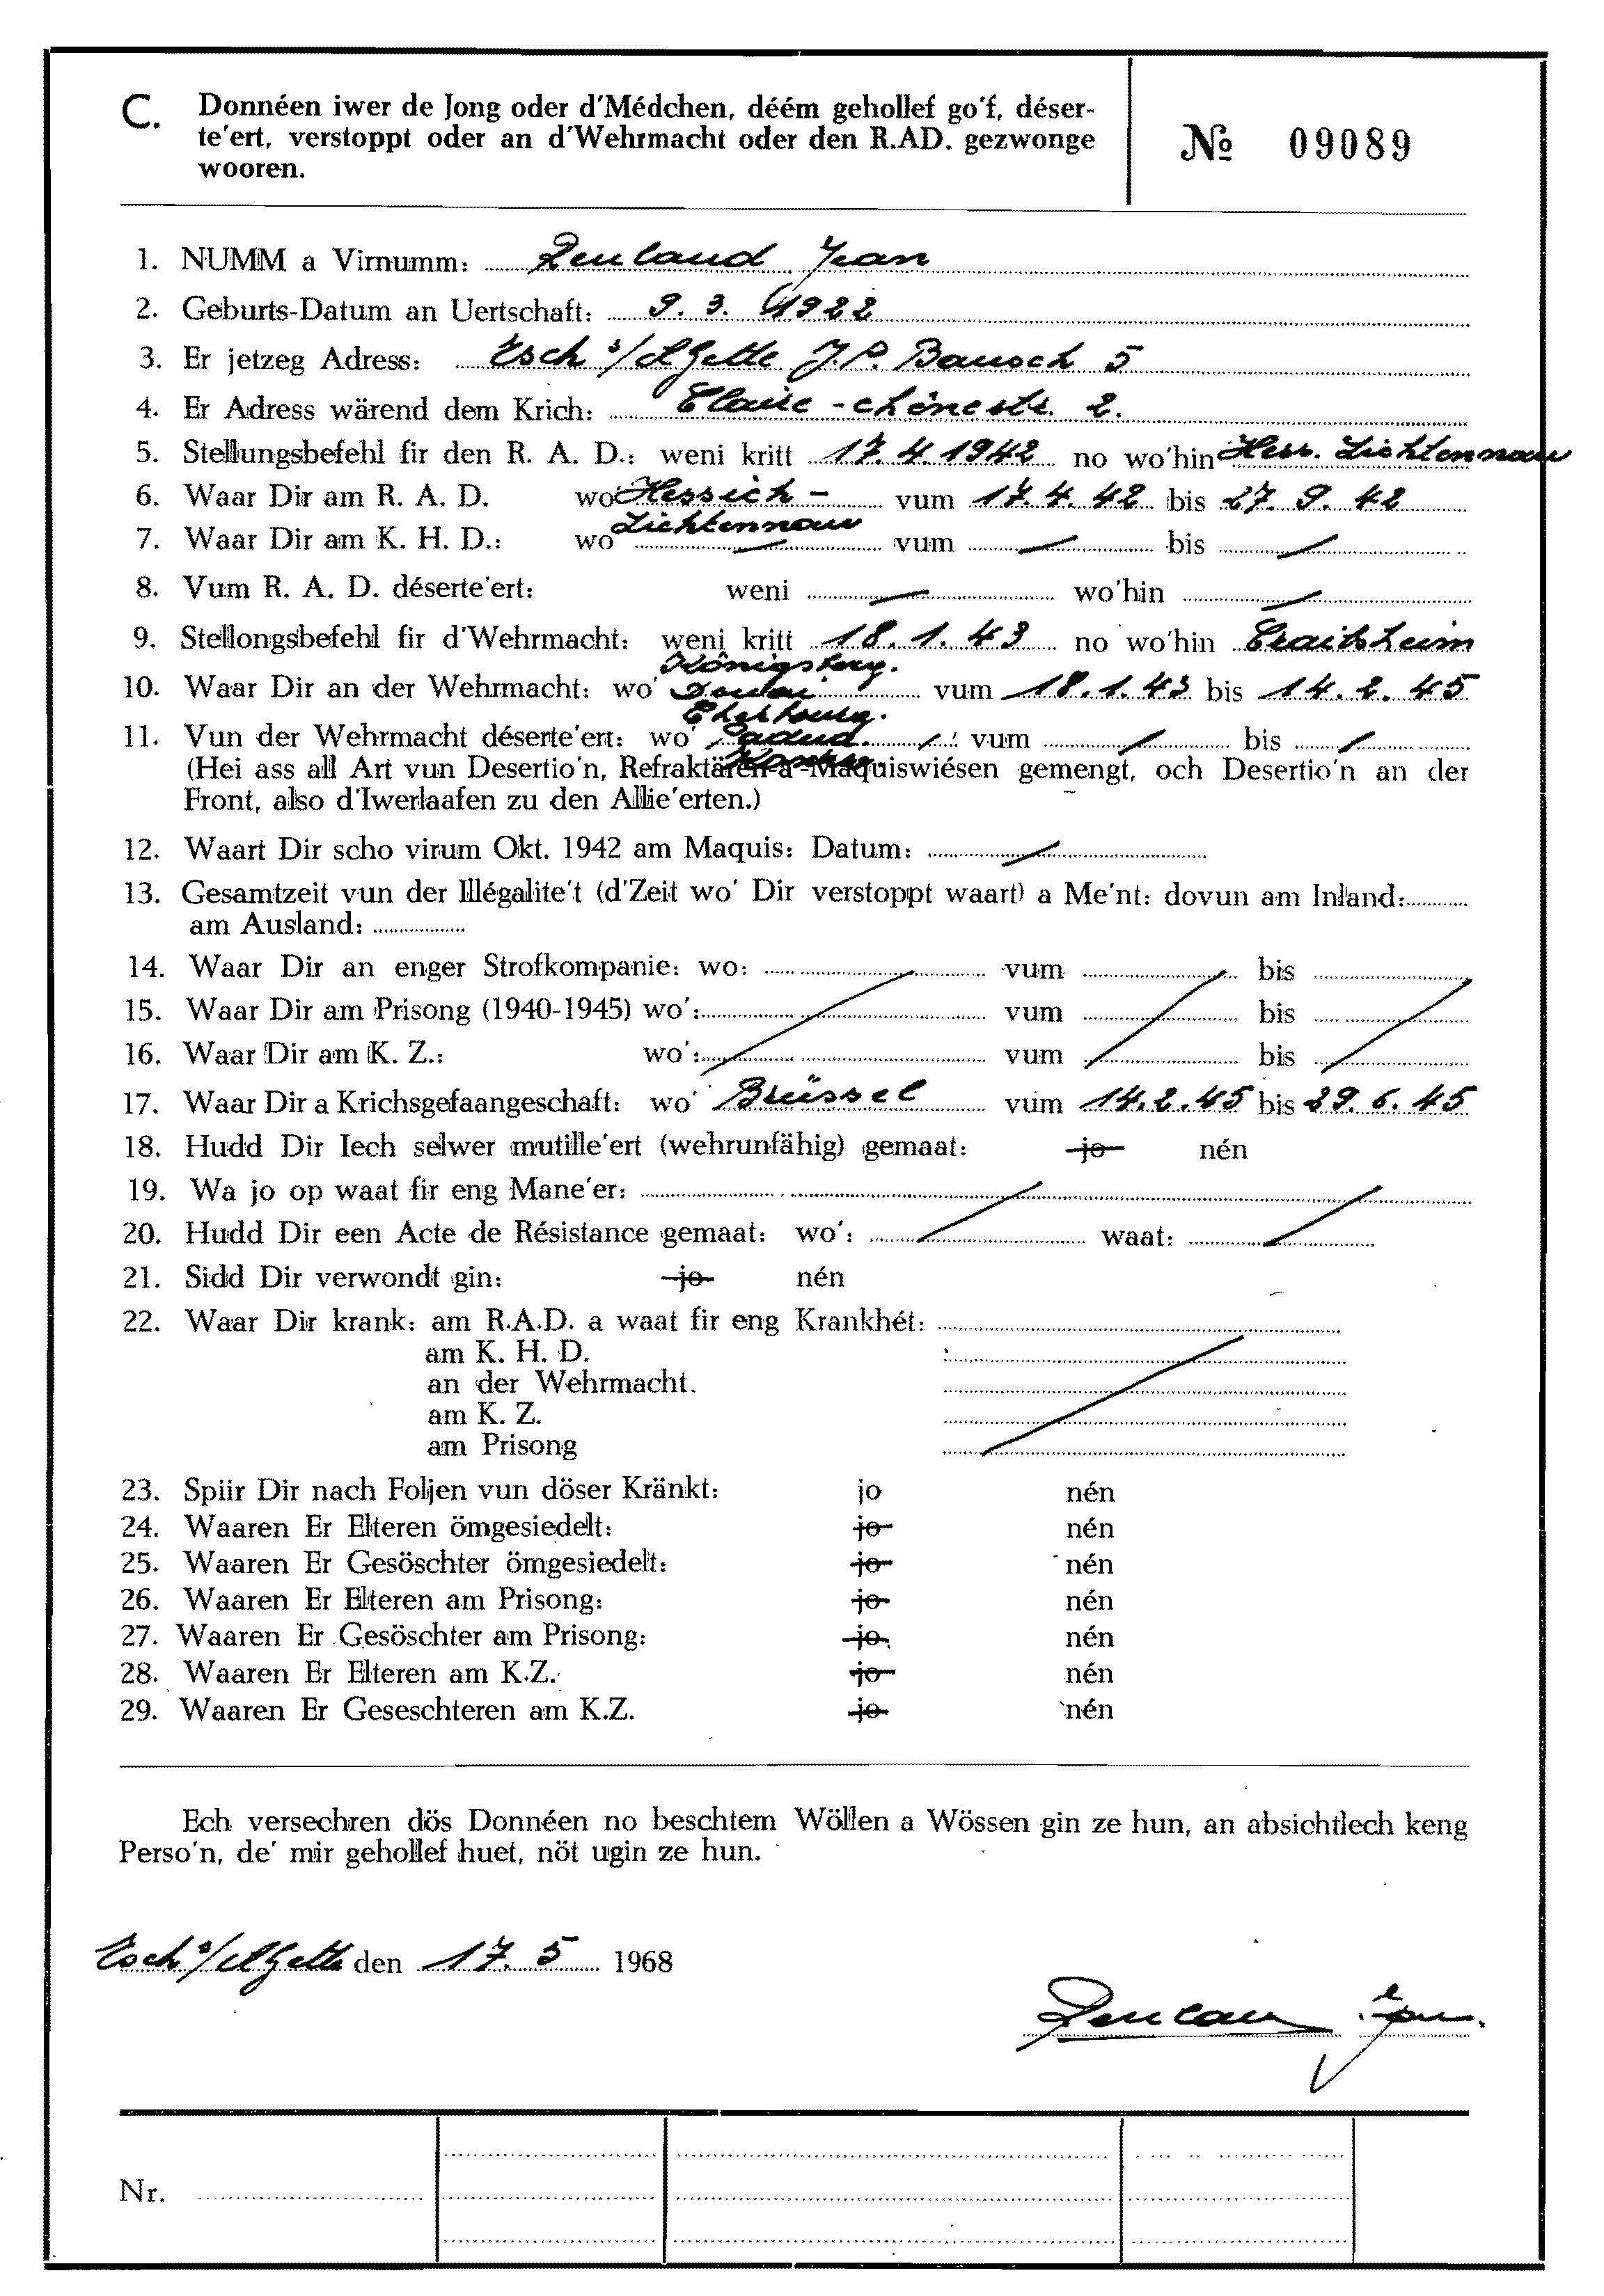 C. Donnéen iwer de Jong oder d'Médchen, déém gehollef go'f, déser-
te'ert, verstoppt oder an d'Wehrmacht oder den R.AD. gezwonge
wooren.
№ 09089
1. NUMM a Virnumm: Reuland Jean
2. Geburts-Datum an Uertschaft: 9. 3. 1922
3. Er jetzeg Adress: Esch s/Alzette J.P. Bausch 5
4. Er Adress wärend dem Krich: 2.
5. Stellungsbefehl fir den R. A. D.: weni kritt 17.4.1942 no wo'hin Hess. Lichtennau
6. Waar Dir am R. A. D. wo Hessich - vum 17.4.42 bis 27. 9. 42
Lichtennau
7. Waar Dir am K. H. D.: wo — vum — bis —
8. Vum R. A. D. déserte'ert: weni — wo'hin —
9. Stellongsbefehl fir d'Wehrmacht: weni kritt 18. 1. 43 no wo'hin Crailsheim
Königsberg.
10. Waar Dir an der Wehrmacht: wo' vum 18.1.43 bis 14. 2. 45
Cherbourg.
11. Vun der Wehrmacht déserte'ert: wo' vum — bis —
(Hei ass all Art vun Desertio'n, Refraktären a Maquiswiésen gemengt, och Desertio'n an der
Front, also d'Iwerlaafen zu den Allie'erten.)
12. Waart Dir scho virum Okt. 1942 am Maquis: Datum: —
13. Gesamtzeit vun der Illégalite't (d'Zeit wo' Dir verstoppt waart) a Me'nt: dovun am Inland:
am Ausland:
14. Waar Dir an enger Strofkompanie: wo: vum bis
15. Waar Dir am Prisong (1940-1945) wo': vum bis
16. Waar Dir am K. Z.: wo': vum bis
17. Waar Dir a Krichsgefaangeschaft: wo' Brüssel vum 14.2.45 bis 29. 6. 45
18. Hudd Dir Iech selwer mutille'ert (wehrunfähig) gemaat: jo nén
19. Wa jo op waat fir eng Mane'er:
20. Hudd Dir een Acte de Résistance gemaat: wo': waat:
21. Sidd Dir verwondt gin: jo nén
22. Waar Dir krank: am R.A.D. a waat fir eng Krankhét:
am K. H. D.
an der Wehrmacht.
am K. Z.
am Prisong
23. Spiir Dir nach Foljen vun döser Kränkt: jo nén
24. Waaren Er Elteren ömgesiedelt: jo nén
25. Waaren Er Gesöschter ömgesiedelt: jo nén
26. Waaren Er Elteren am Prisong: jo nén
27. Waaren Er Gesöschter am Prisong: jo nén
28. Waaren Er Elteren am K.Z. jo nén
29. Waaren Er Geseschteren am K.Z. jo nén
Ech versechren dös Donnéen no beschtem Wöllen a Wössen gin ze hun, an absichtlech keng
Perso'n, de' mir gehollef huet, nöt ugin ze hun.
Esch s/Alzette den 17. 5 1968
Reuland Jean
Nr.